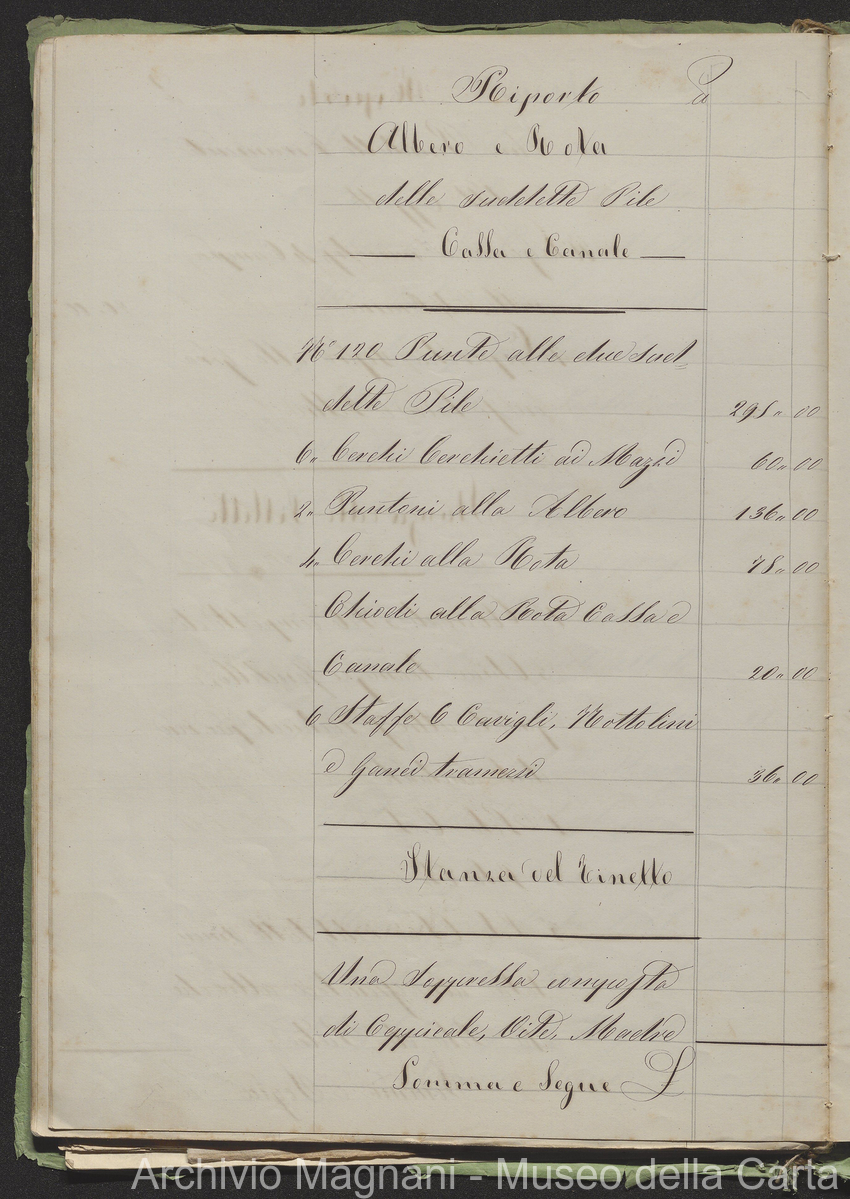 Riporto £
Albero e Rota
delle suddette Pile
Cassa e Canale
N° 120 Punte alle due sud=
dette Pile 298,, 00
6,, Cerchi Cerchietti ai Mazzi 60,, 00
2,, Puntoni alla Albero 136,, 00
4,, Cerchi alla Rota 78,, 00
Chiodi alla Rota Cassa e
Canale 20,, 00
6 Staffe 6 Cavigli, Nottolini
e Ganci tramezzi 36,, 00
Stanza del Tinello
Una Soppressa composta
di Ceppicale, Vite, Madre
Somma e Segue £
Archivio Magnani - Museo della Carta